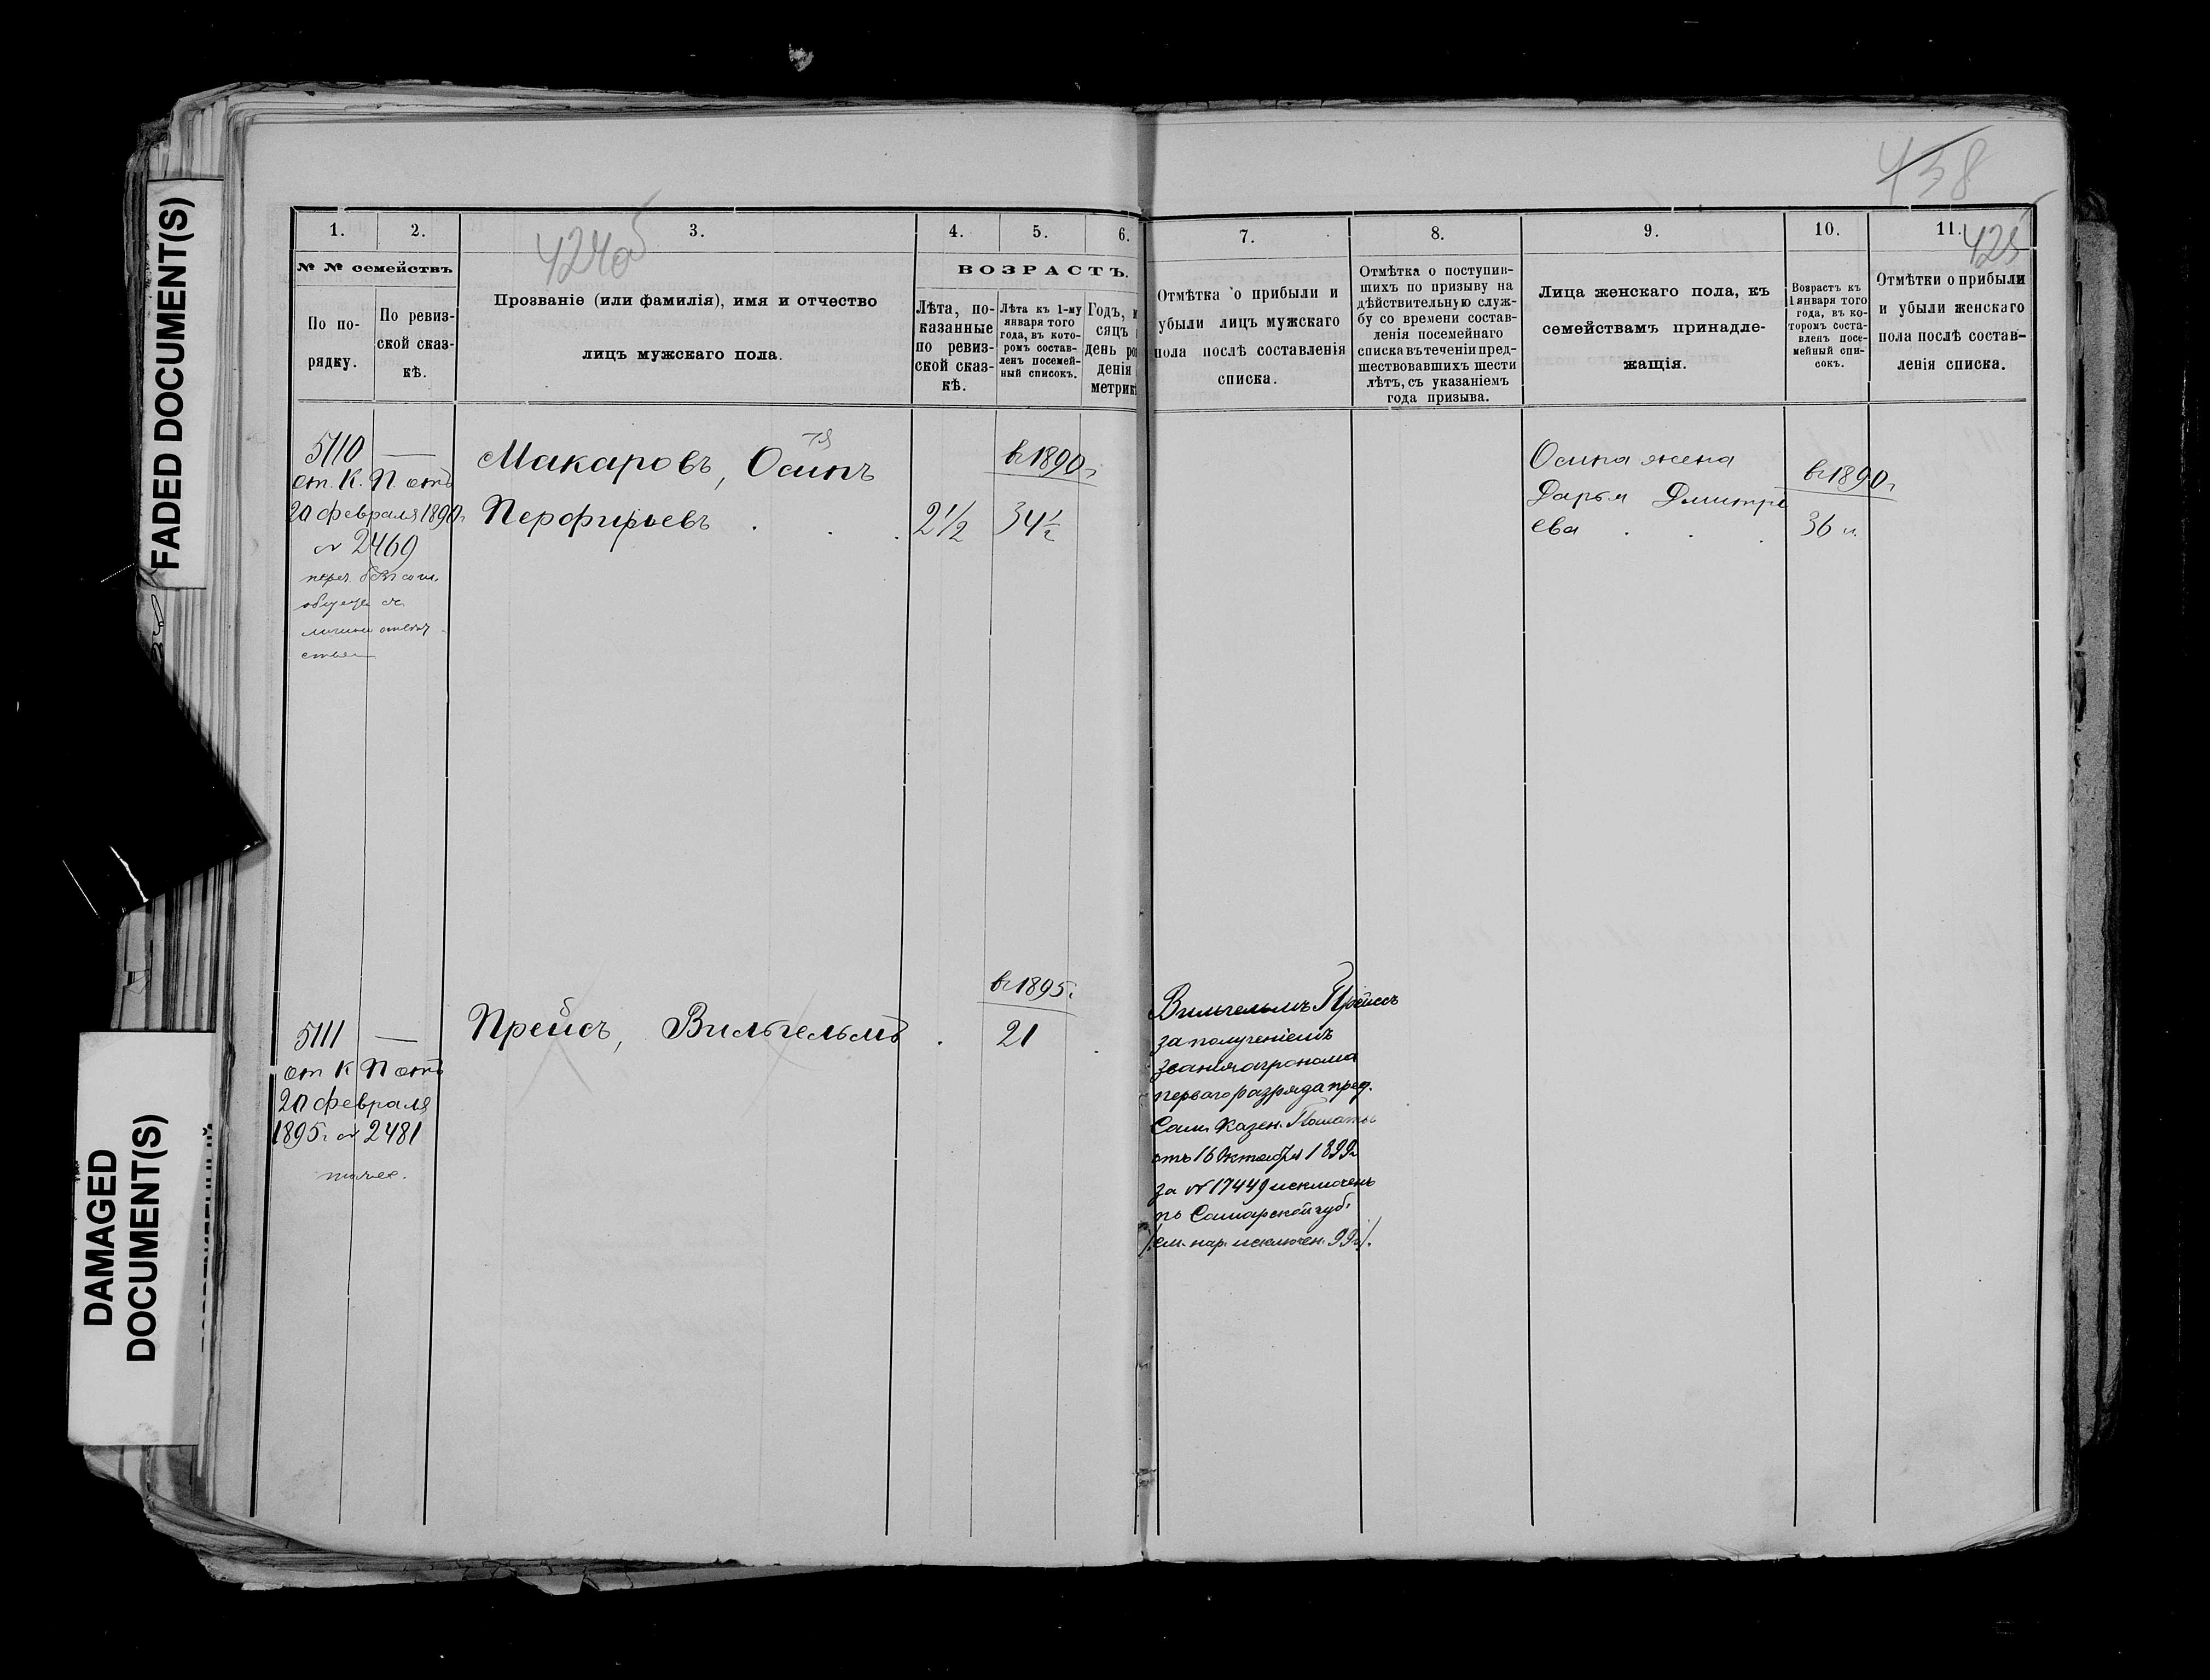 FADED DOCUMENT(S)
DAMAGED
DOCUMENT(S)
438
425
424об
1. 2. 3. 4. 5. 6. 7. 8. 9. 10. 11.
№ № семействъ
По по-
рядку.
По ревиз-
ской сказ-
кѣ.
Прозваніе (или фамилія), имя и отчество
лицъ мужскаго пола.
ВОЗРАСТЪ.
Лѣта, по-
казанные
по ревиз-
ской сказ-
кѣ.
Лѣта къ 1-му
января того
года, въ кото-
ромъ состав-
ленъ посемей-
ный списокъ.
Годъ,
сяцъ
день ро
денія
метрик
Отмѣтка о прибыли и
убыли лицъ мужскаго
пола послѣ составленія
списка.
Отмѣтка о поступив-
шихъ по призыву на
дѣйствительную служ-
бу со времени состав-
ленія посемейнаго
списка въ теченіи пред-
шествовавшихъ шести
лѣтъ, съ указаніемъ
года призыва.
Лица женскаго пола, къ
семействамъ принадле-
жащія.
Возрастъ къ
1 января того
года, въ ко-
торомъ соста-
вленъ посе-
мейный спи-
сокъ.
Отмѣтки о прибыли
и убыли женскаго
пола послѣ состав-
ленія списка.
5110 —
от. К. П. отъ
20 февраля 1890г.
№ 2469
Макаровъ, Осипъ
Перфирьевъ
2½
в 1890г
34½
Осипа жена
Дарья Дмитрі
ева
в 1890г
36 л.
5111 —
от К П отъ
20 февраля
1895г. № 2481
Прейсъ, Вильгельмъ
в 1895г.
21
Вильгельмъ Прейсъ
за полученіемъ
званія агронома
перваго разряда пред.
Сам. Казен. Палаты
отъ 16 Октября 1899г
за № 17449 исключенъ
по Самарской губ.
/см. нар. исключен. 99г/.